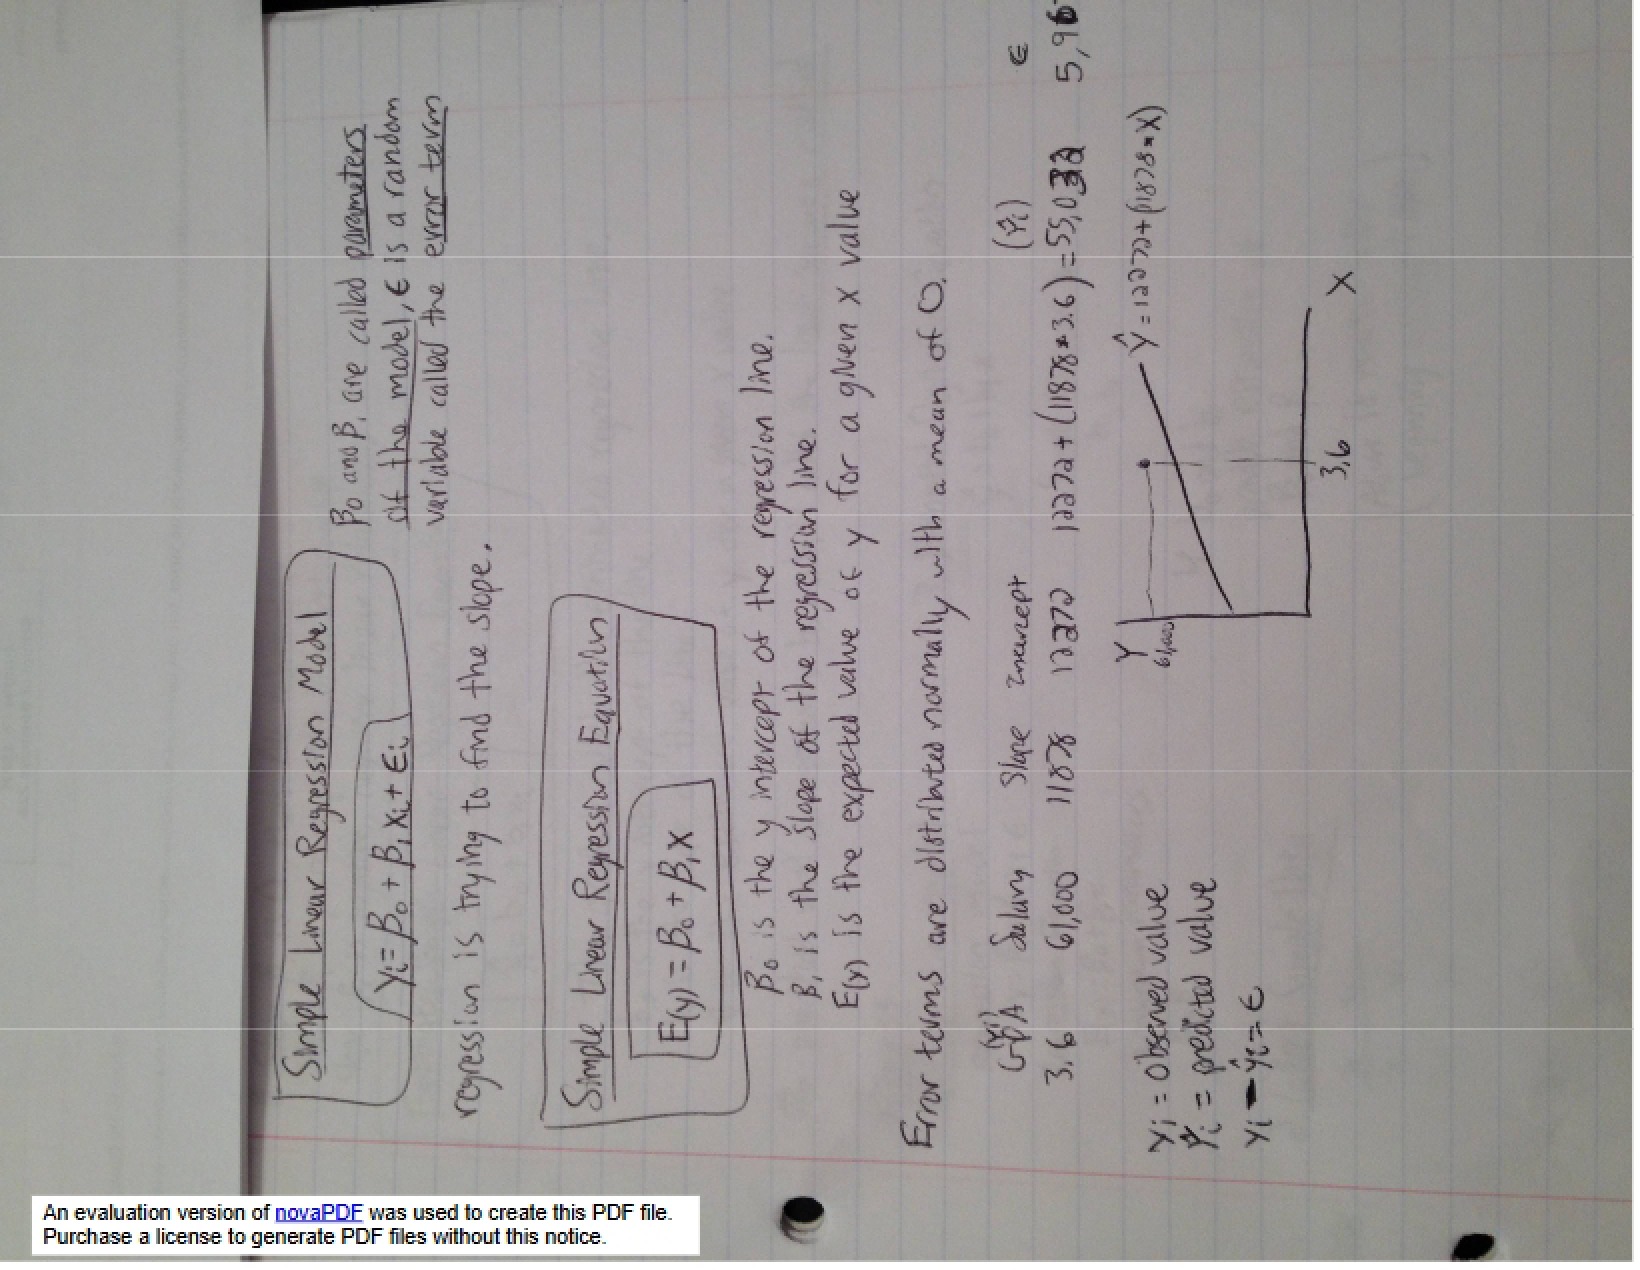 Simple Linear Regression Model
β₀ and β₁ are called parameters
of the model, ϵ is a random
variable called the error term
yᵢ = β₀ + β₁ xᵢ + ϵᵢ
regression is trying to find the slope.
Simple Linear Regression Equation
E(y) = β₀ + β₁ x
β₀ is the y intercept of the regression line.
β₁ is the slope of the regression line.
E(y) is the expected value of y for a given x value
Error terms are distributed normally with a mean of 0.
GPA Salary Slope Intercept (ŷᵢ) ϵ
3.6 61,000 11878 12272 12272 + (11878 * 3.6) = 55,032
yᵢ = observed value
ŷᵢ = predicted value
yᵢ - ŷᵢ = ϵ
Y
61,000
ŷ = 12272 + (11878 * x)
3.6
X
An evaluation version of novaPDF was used to create this PDF file.
Purchase a license to generate PDF files without this notice.